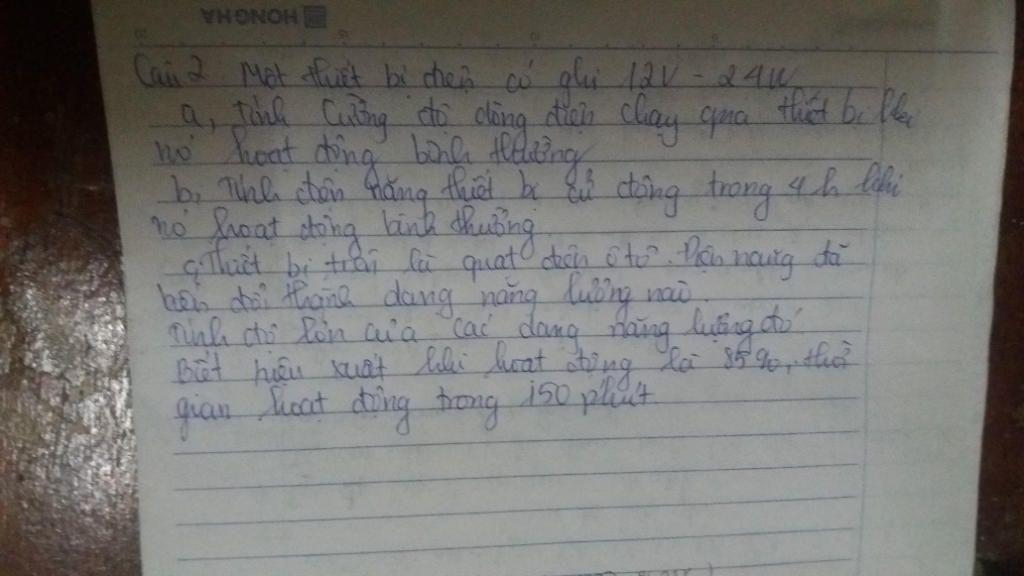 HONGHA
Câu 2 Một thiết bị điện có ghi 12V - 24W
a, Tính Cường độ dòng điện chạy qua thiết bị khi
nó hoạt động bình thường
b, Tính điện năng thiết bị sử dụng trong 4h khi
nó hoạt động bình thường
c, Thiết bị trên là quạt điện ôtô. Điện năng đã
biến đổi thành dạng năng lượng nào.
Tính độ lớn của các dạng năng lượng đó
Biết hiệu suất khi hoạt động là 85%, thời
gian hoạt động trong 150 phút